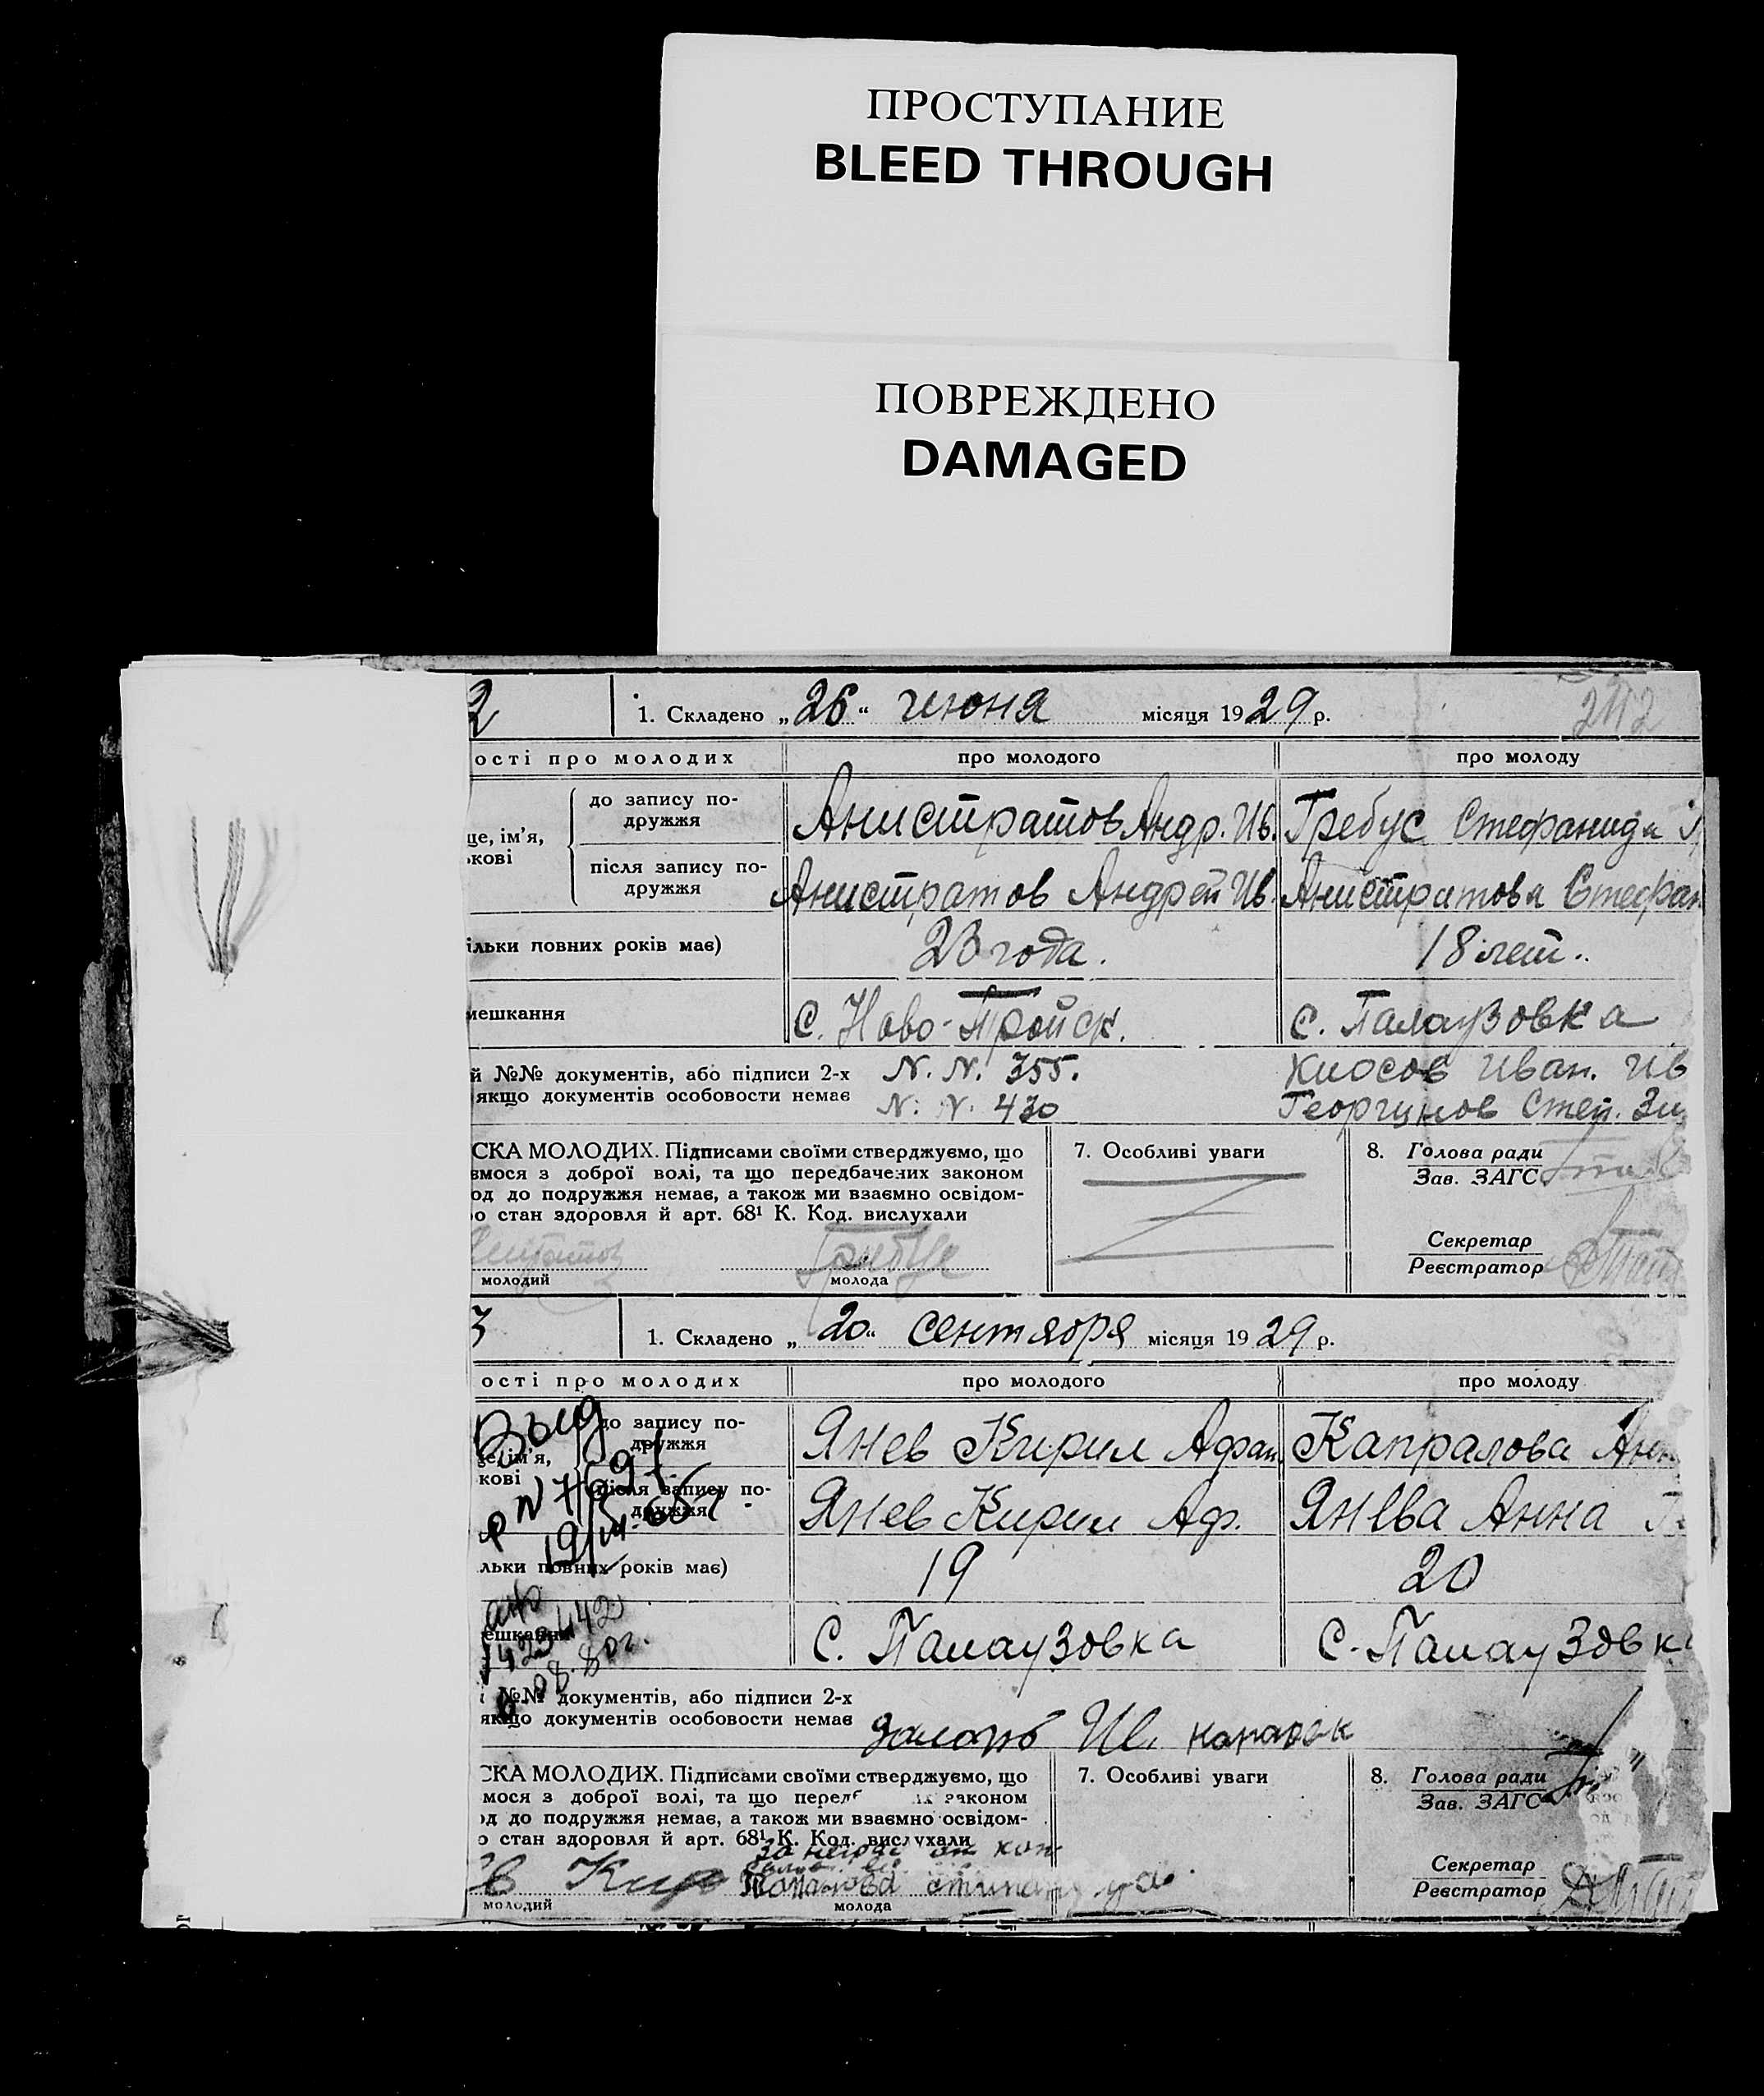 ПРОСТУПАНИЕ
BLEED THROUGH
ПОВРЕЖДЕНО
DAMAGED
2 1. Складено „26“ июня місяця 1929 р. 2112
ості про молодих про молодого про молоду
до запису по-
дружжя
Анистратов Андр. Ив. Гребус Стефанида
ще, ім'я,
ькові
після запису по-
дружжя
Анистратов Андрей Ив. Анистратова Стефан
ільки повних років має) 23 года. 18 лет.
мешкання с. Ново-Тройск. с. Палаузовка
й №№ документів, або підписи 2-х N. N. 355. Киосов Иван. Ив
якщо документів особовости немає N. N. 430 Георгинов Степ. Зи
СКА МОЛОДИХ. Підписами своїми стверджуємо, що
ємося з доброї волі, та що передбачених законом
од до подружжя немає, а також ми взаємно освідом-
о стан здоровля й арт. 68¹ К. Код. вислухали
молодий молода
7. Особливі уваги
8. Голова ради
Зав. ЗАГС
Секретар
Реєстратор
3 1. Складено „20“ сентября місяця 1929 р.
ості про молодих про молодого про молоду
до запису по-
дружжя
Янев Кирил Афан. Капралова Анн
ім'я,
кові
після запису по-
дружжя
Янев Кирил Аф. Янева Анна
льки повних років має) 19 20
ешкання с. Палаузовка с. Палаузовк
Выд
№№ документів, або підписи 2-х
якщо документів особовости немає
08.80г.
СКА МОЛОДИХ. Підписами своїми стверджуємо, що
ємося з доброї волі, та що перед законом
од до подружжя немає, а також ми взаємно освідом-
о стан здоровля й арт. 68¹ К. Код. вислухали
в Кир
молодий молода
7. Особливі уваги
8. Голова ради
Зав. ЗАГС
Секретар
Реєстратор